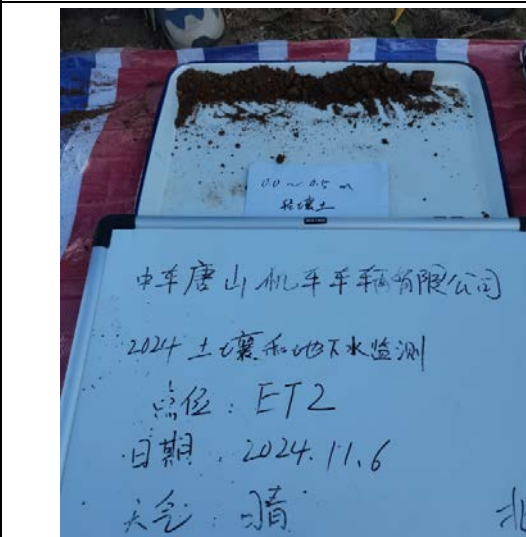 0.0~0.5m
轻壤土
中车唐山机车车辆有限公司
2024土壤和地下水监测
点位：ET2
日期：2024.11.6
天气：晴
北